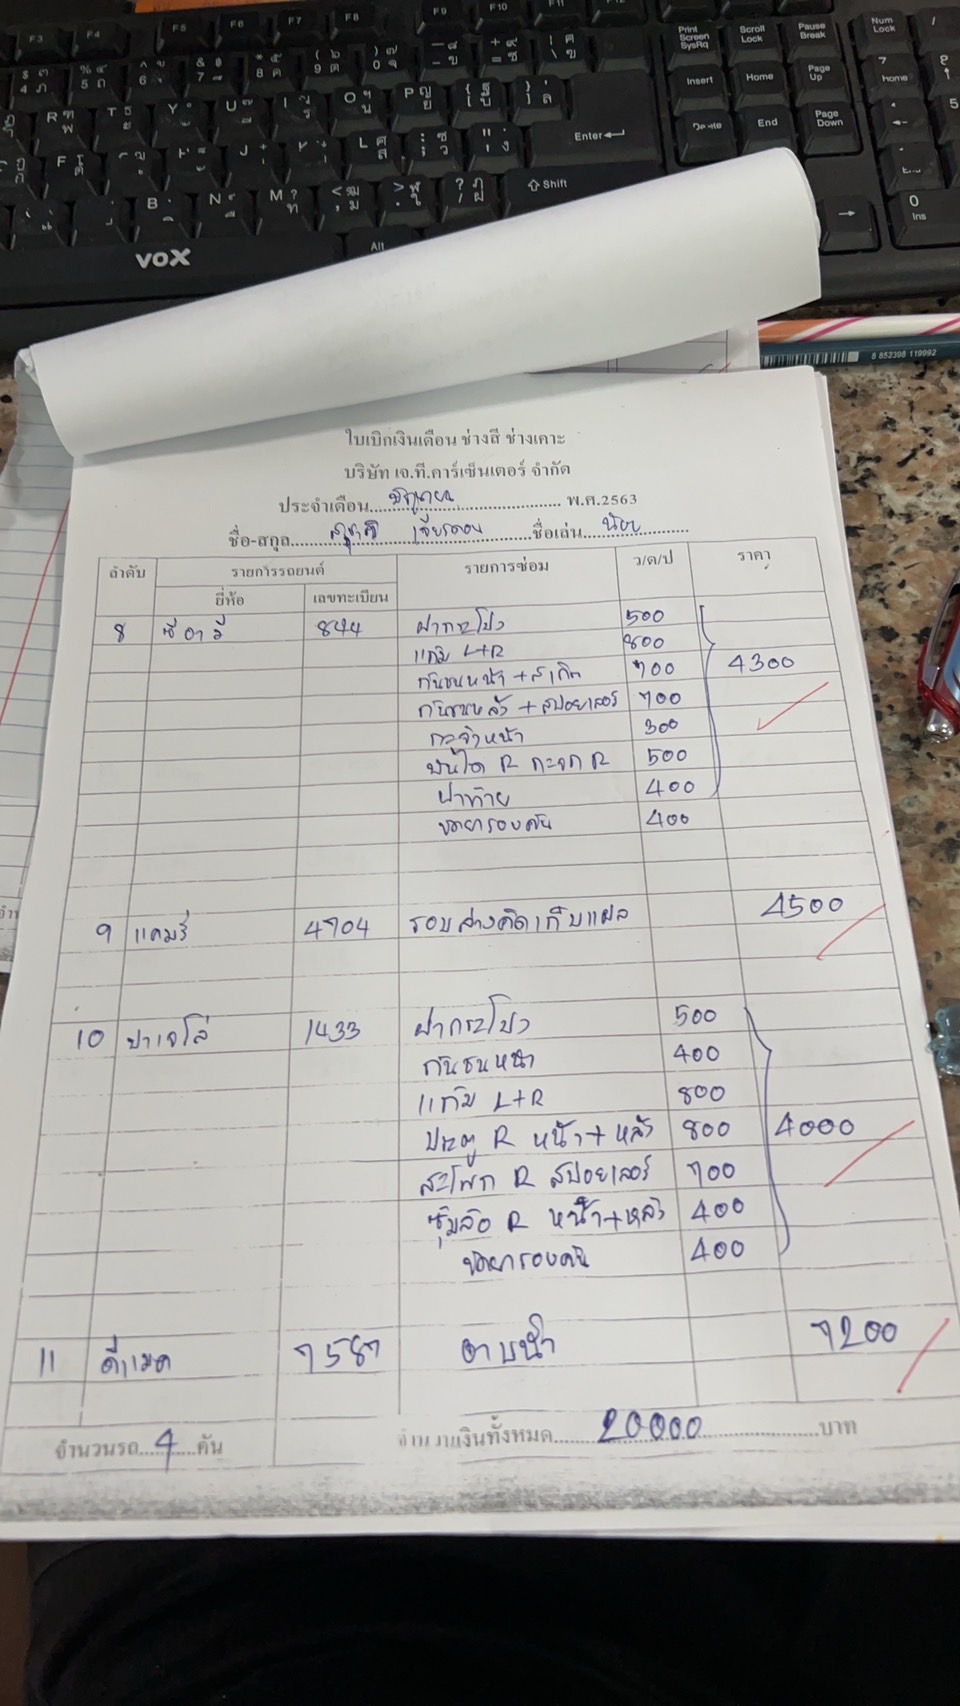 F3 F4 F5 F6 F7 F8 F9 F10 F11 F12
Print Screen SysRq
Scroll Lock
Pause Break
Num Lock
Insert Home Page Up
End Page Down
7 Home
Enter
Shift
B N M
Alt
0 Ins
VOX
8 852398 119992
ใบเบิกเงินเดือน ช่างสี ช่างเคาะ
บริษัท เจ.ที.คาร์เซ็นเตอร์ จำกัด
ประจำเดือน มิถุนายน พ.ศ.2563
ชื่อ-สกุล ชื่อเล่น
ลำดับ รายการรถยนต์ รายการซ่อม ว/ด/ป ราคา
ยี่ห้อ เลขทะเบียน
8 ซีอาวี 844 ฝากระโปง 500
แก้ม L+R 800
กันชนหน้า + สเกิต 700 4300
กันชนหลัง + สปอยเลอร์ 700
กระจังหน้า 300
บันได R กะจก R 500
ฝาท้าย 400
ขัดยารองคัน 400
9 แคมรี่ 4704 รอบล่างคิดเก็บแผล 4500
10 ปาเจโล่ 1433 ฝากระโปง 500
กันชนหน้า 400
แก้ม L+R 800
ประตู R หน้า+หลัง 800 4000
สะโพก R สปอยเลอร์ 700
ซุ้มล้อ R หน้า+หลัง 400
ขัดยารองคัน 400
11 ดีแมค 7587 อาบน้ำ 7200
จำนวนรถ 4 คัน จำนวนเงินทั้งหมด 20000 บาท